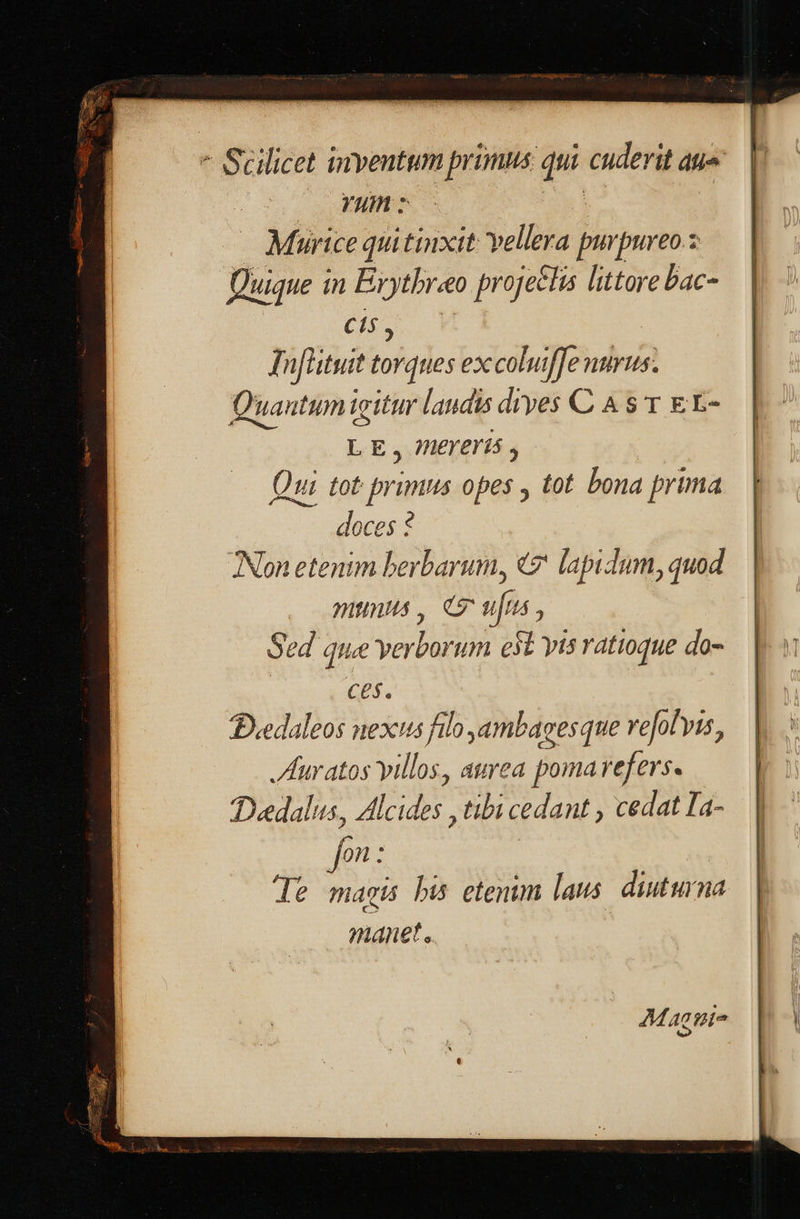 Scilicet inventum primus qui cuderit au-
rum:
Murice qui tinxit vellera purpureo:
Quique in Erythræo projectis littore bac-
cis,
Inſtituit torques excoluiſſe nurus.
Quantum igitur laudis dives CASTEL-
LE, mereris,
Qui tot primus opes, tot bona prima
doces?
Non etenim herbarum, & lapidum, quod
munus, & uſus,
Sed quæ verborum est vis ratioque do-
ces.
Dædaleos nexus filo, ambagesque reſolvis,
Auratos villos, aurea poma refers.
Dædalus, Alcides, tibi cedant, cedat Ia-
ſon:
Te magis his etenim laus diuturna
manet.
Magni-